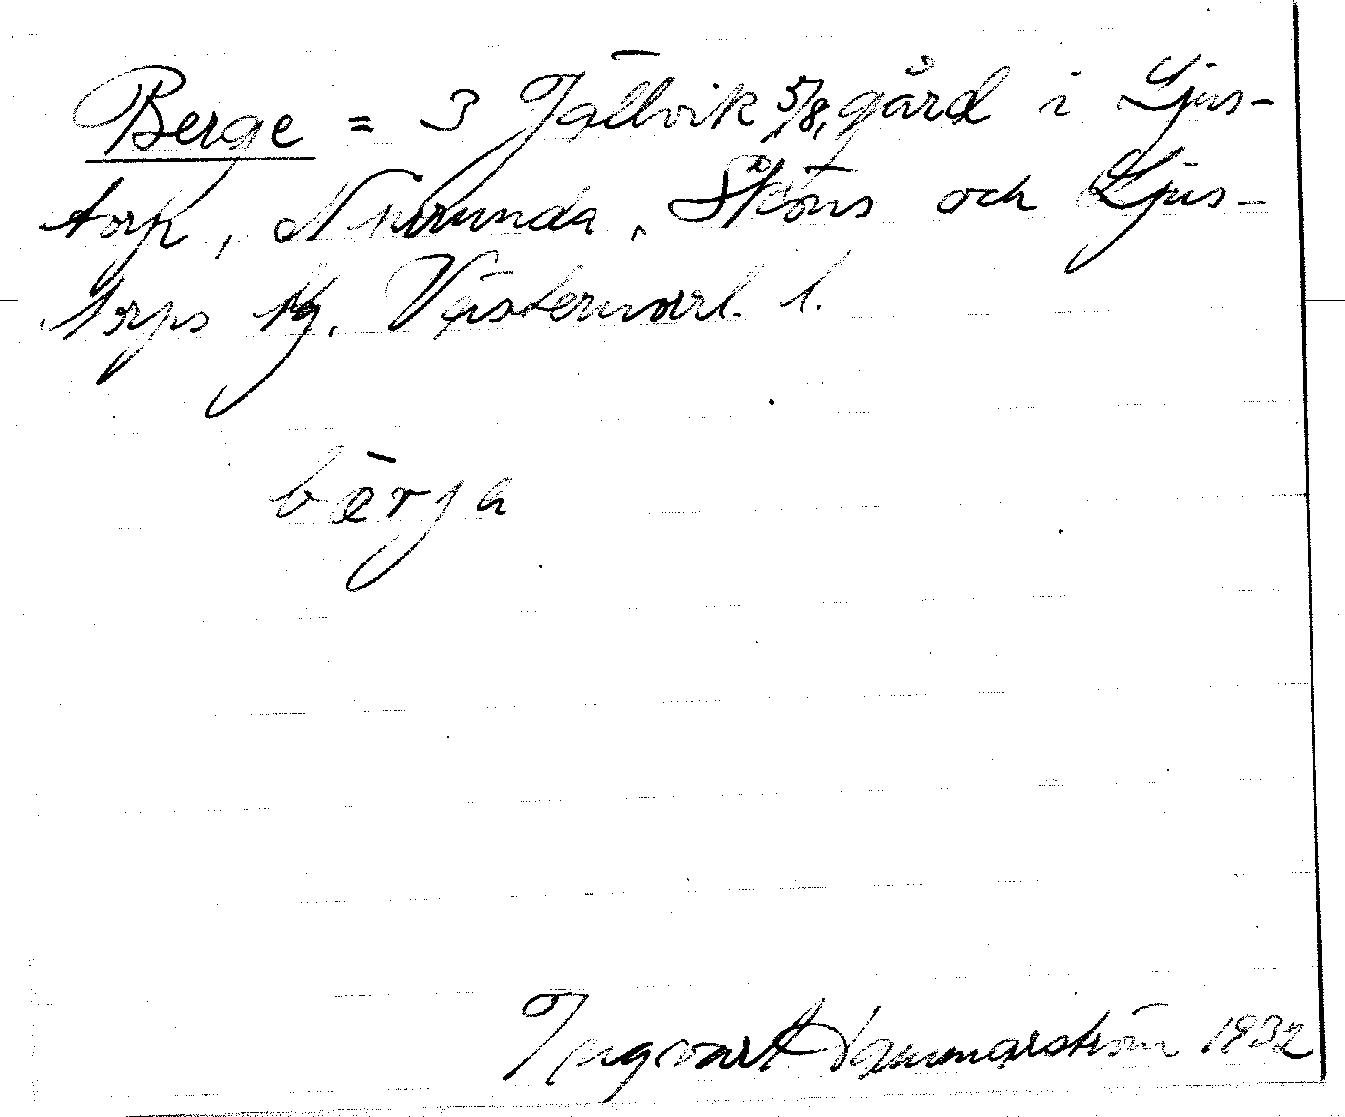 Berge = 3 Jällvik 5/8, gård i Ljus-
torp, Njurunda, Sköns och Ljus-
torps tg. Västernorrl. l.
bärja
Ingvart Hammarström 1932